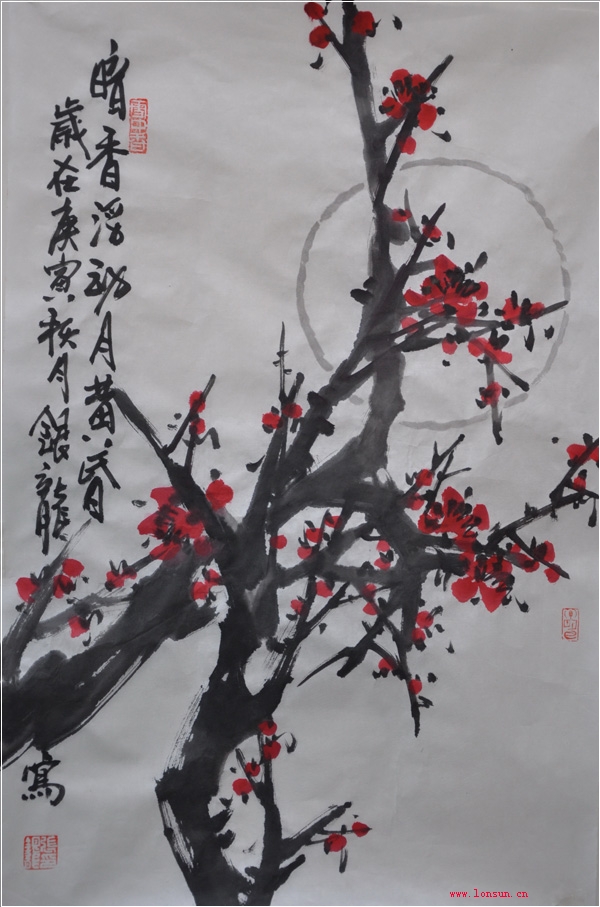 暗香浮動月黄昏
歲在庚寅秋月銀龍
寫
www.lonsun.cn